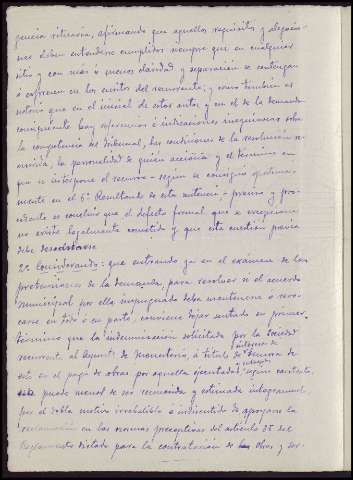 gencia reiterada, afirmando que aquellos requisitos y alegacio-
nes deben entenderse cumplidos siempre que en cualquier
sitio y con mas o menos claridad y separación se contengan
o expresen en los escritos del recurrente; y como tambien es
notorio que en el inicial de estos autos y en el de la demanda
consiguiente hay referencias é indicaciones inequivocas sobre
la competencia del Tribunal, las condiciones de la resolución re-
currida, la personalidad de quien acciona y el término en
que se interpone el recurso - según se consigna oportuna-
mente en el 6º Resultando de esta sentencia - preciso y pro-
cedente es concluir que el defecto formal que se
no existe legalmente cometido y que esta cuestion previa
debe desestimarse
2º Considerando: que entrando ya en el examen de las
pretensiones de la demanda, para resolver si el acuerdo
municipal por ella impugnado debe mantenerse o revo-
carse en todo o en parte, conviene dejar sentado en primer
término que la indemnización solicitada por la Sociedad
recurrente al Ayunt. de a titulo de intereses de demora de
este en el pago de obras por aquella ejecutadas según contrato,
puede menos de ser reconocida y estimada integramente
por el doble motivo irrebatible é indiscutido de apoyarse la
reclamación en las normas preceptivas del articulo 38 del
Reglamento dictado para la contratación de las obras y ser-